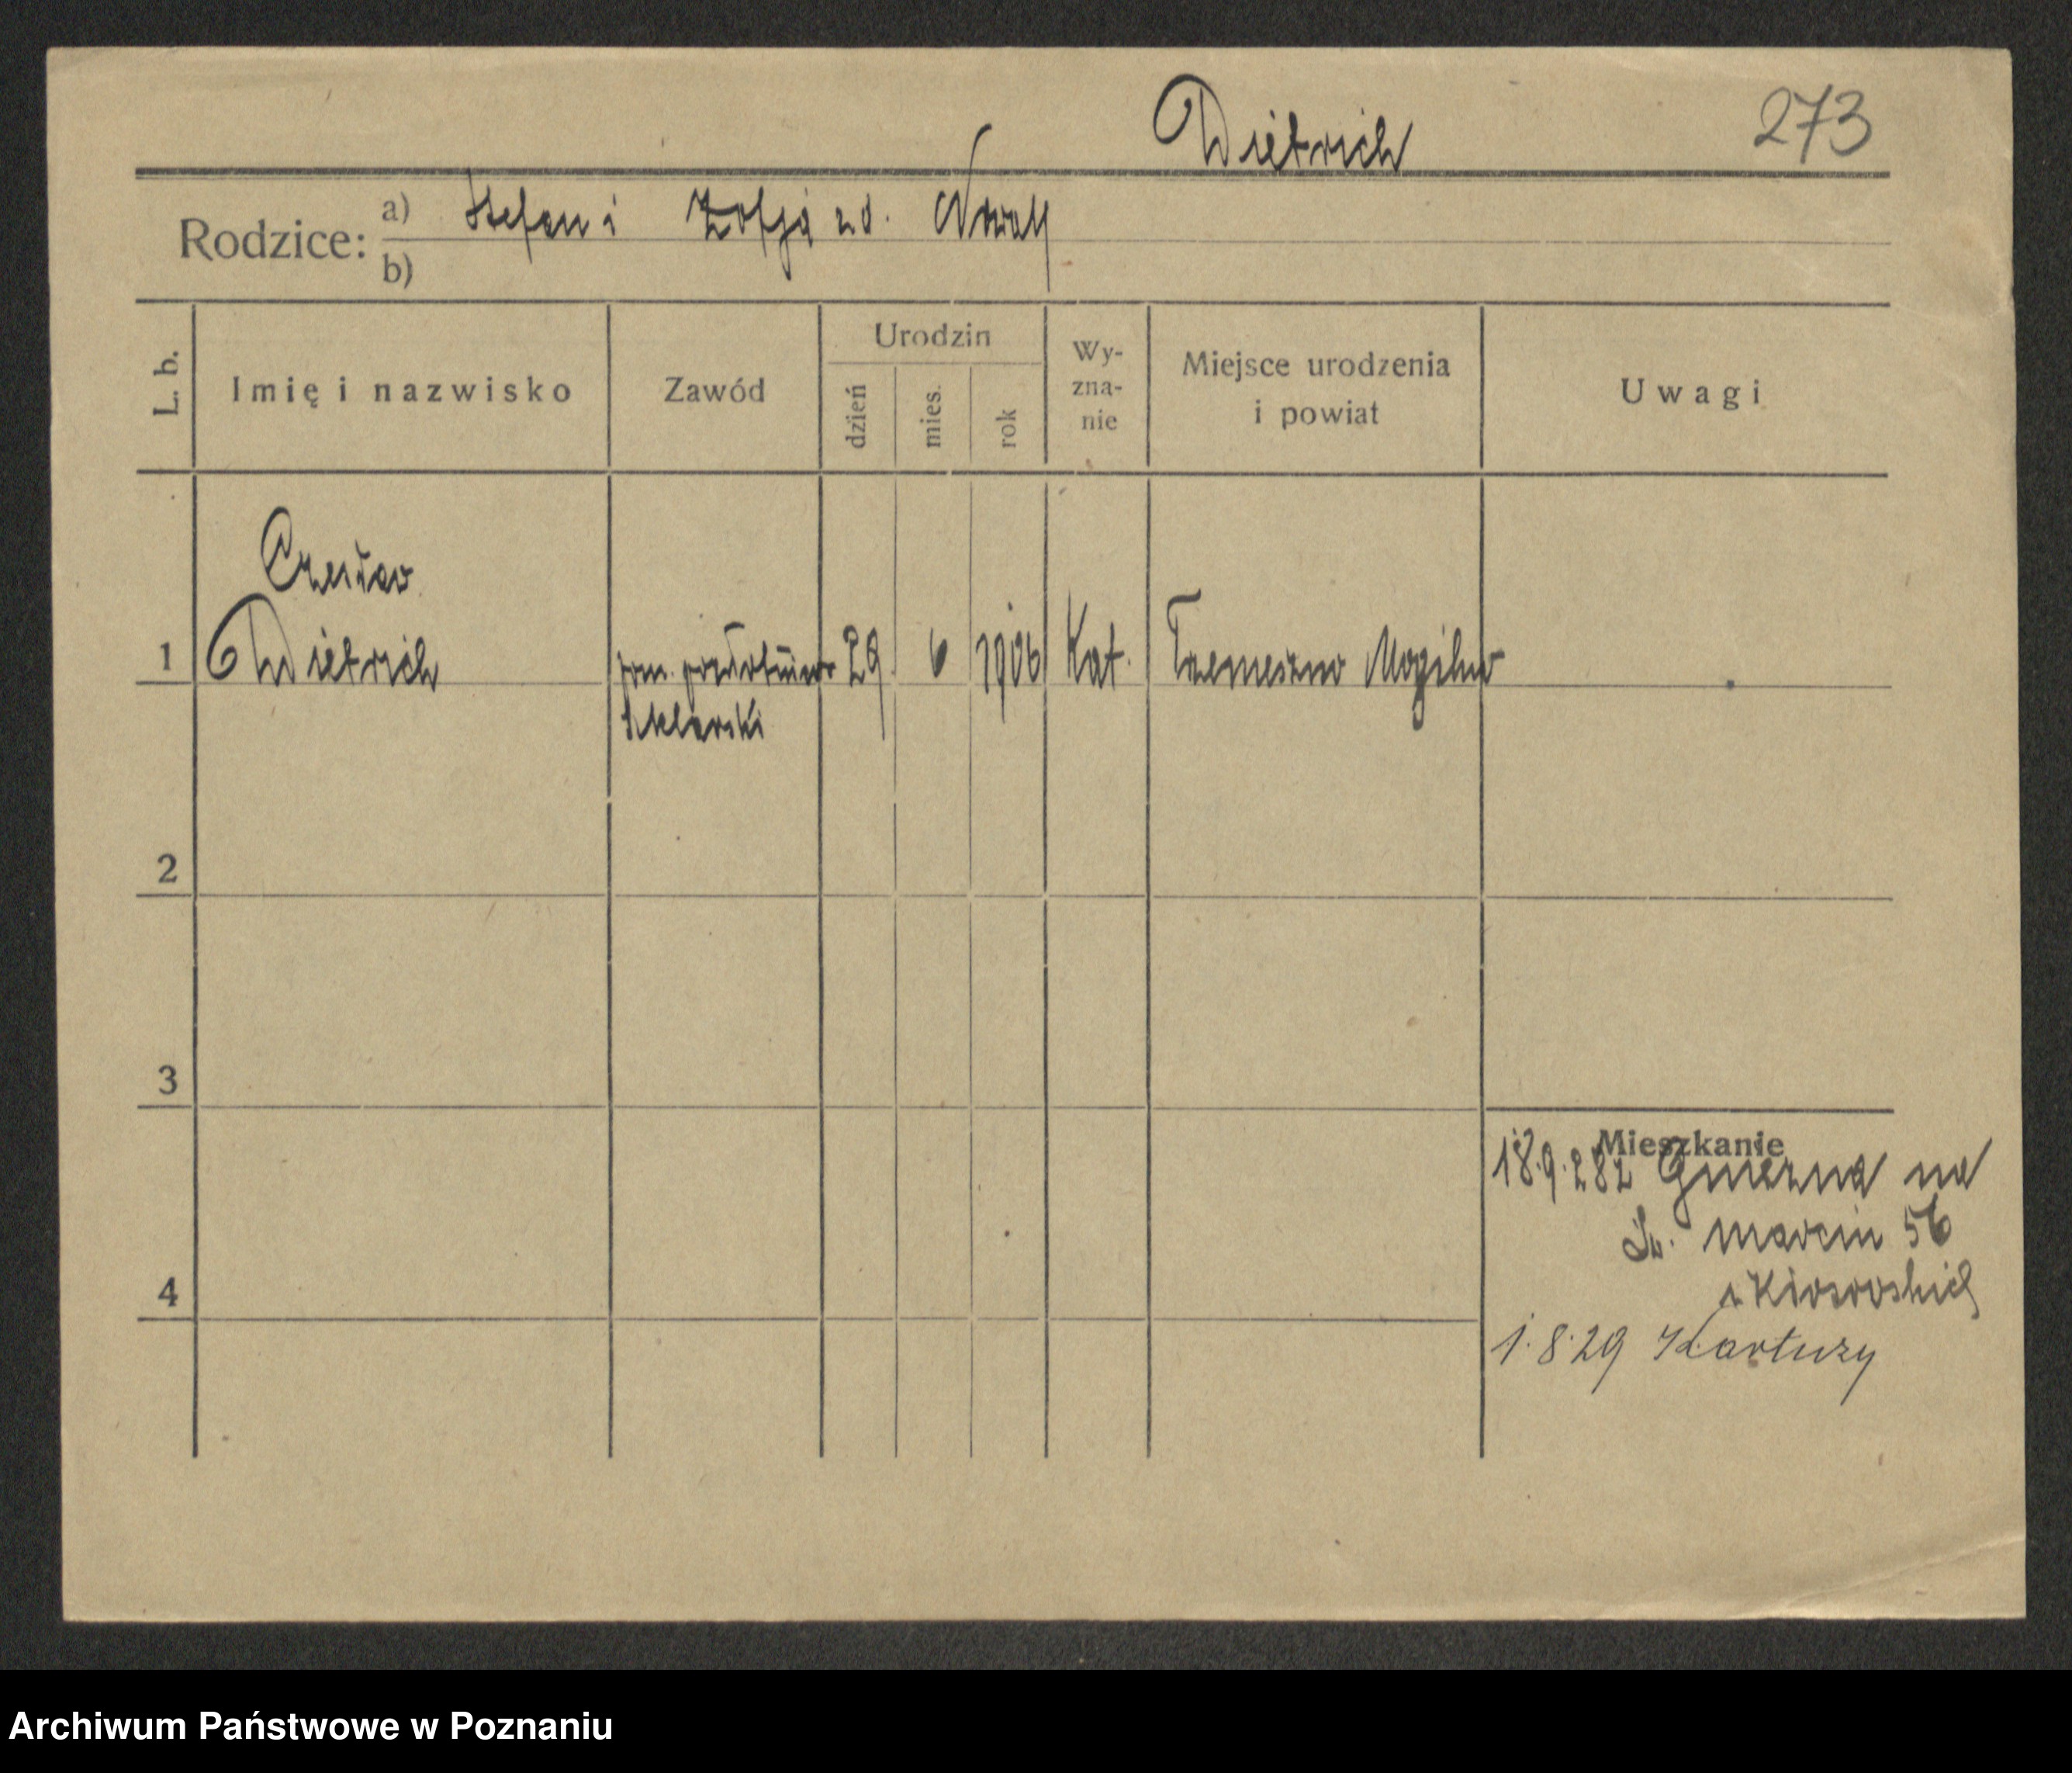 Dietrich
273
Rodzice:
a) Stefan i Zofja zd. Nowak
b)
L. b.
Imię i nazwisko
Zawód
Urodzin
dzień
mies.
rok
Wy-
zna-
nie
Miejsce urodzenia
i powiat
Uwagi
Czesław
1 Dietrich 29 6 1906 Kat. Trzemeszno Mogilno
szklarski
2
3
Mieszkanie
18.9.28 z Gniezna na
Św. Marcin 56
4
1.8.29 Kartuzy
Archiwum Państwowe w Poznaniu